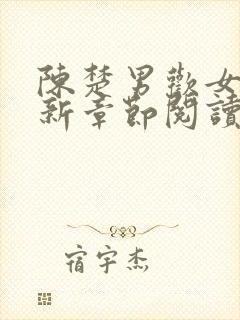 陳楚男歡女
新章節閱讀
宿宇杰